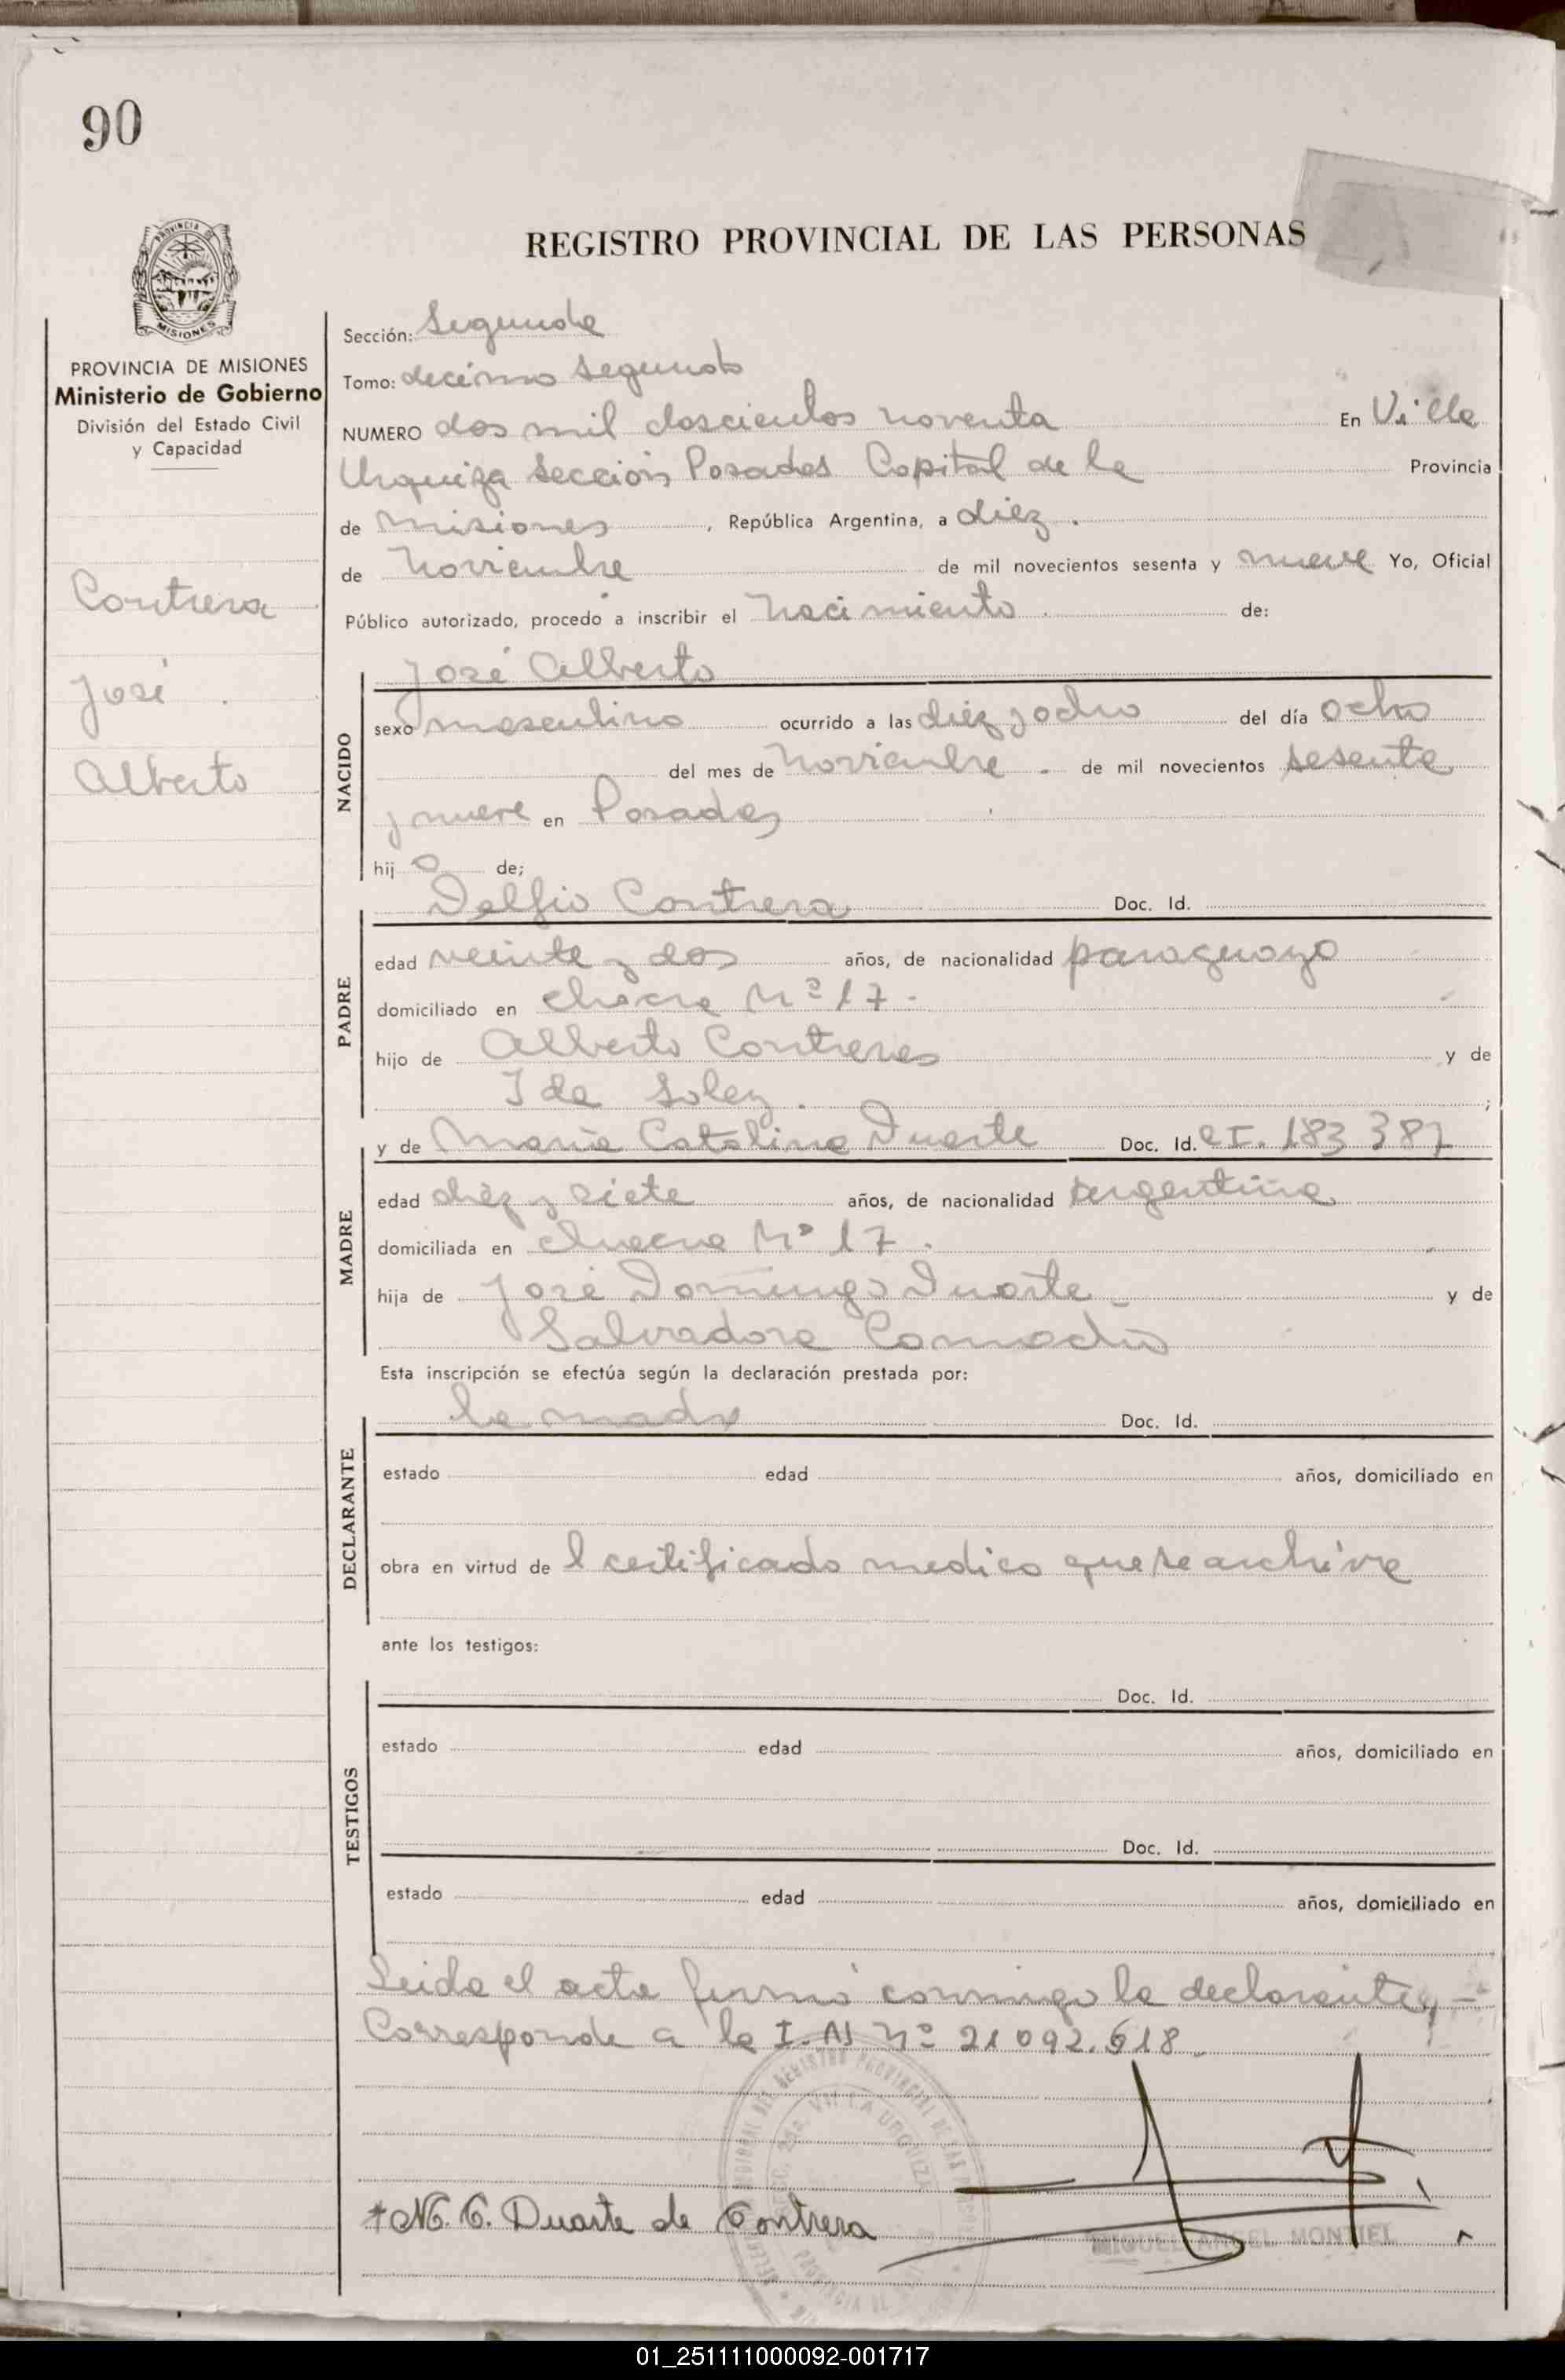 90
PROVINCIA DE MISIONES
PROVINCIA DE MISIONES
Ministerio de Gobierno
División del Estado Civil
y Capacidad
Contrera
José
Alberto
REGISTRO PROVINCIAL DE LAS PERSONAS
Sección: Segunda
Tomo: decimo segundo
NUMERO dos mil doscientos noventa En Villa
Urquiza Sección Posadas Capital de la Provincia
de Misiones, República Argentina, a diez.
de Noviembre de mil novecientos sesenta y nueve Yo, Oficial
Público autorizado, procedo a inscribir el Nacimiento. de:
José Alberto
NACIDO
sexo masculino ocurrido a las diez y ocho del día ocho
del mes de Noviembre. de mil novecientos sesenta
y nueve en Posadas
hijo de;
Delfio Contrera Doc. Id.
PADRE
edad veinte y dos años, de nacionalidad paraguayo
domiciliado en chacra Nº 17.
hijo de Alberto Contreras y de
Ida Soley.;
y de Maria Catalina Duarte Doc. Id. C.I. 183 387
MADRE
edad diez y siete años, de nacionalidad argentina
domiciliada en chacra Nº 17.
hija de José Domingo Duarte y de
Salvadora Camacho
Esta inscripción se efectúa según la declaración prestada por:
la madre Doc. Id.
DECLARANTE
estado edad años, domiciliado en
obra en virtud de l certificado medico que se archiva
ante los testigos:
Doc. Id.
TESTIGOS
estado edad años, domiciliado en
Doc. Id.
estado edad años, domiciliado en
Leida el acta firmó conmigo la declarante, -
Corresponde a la I. Nº 21 092.618.
M. C. Duarte de Contrera
MIGUEL ANGEL MONTIEL
01_251111000092-001717